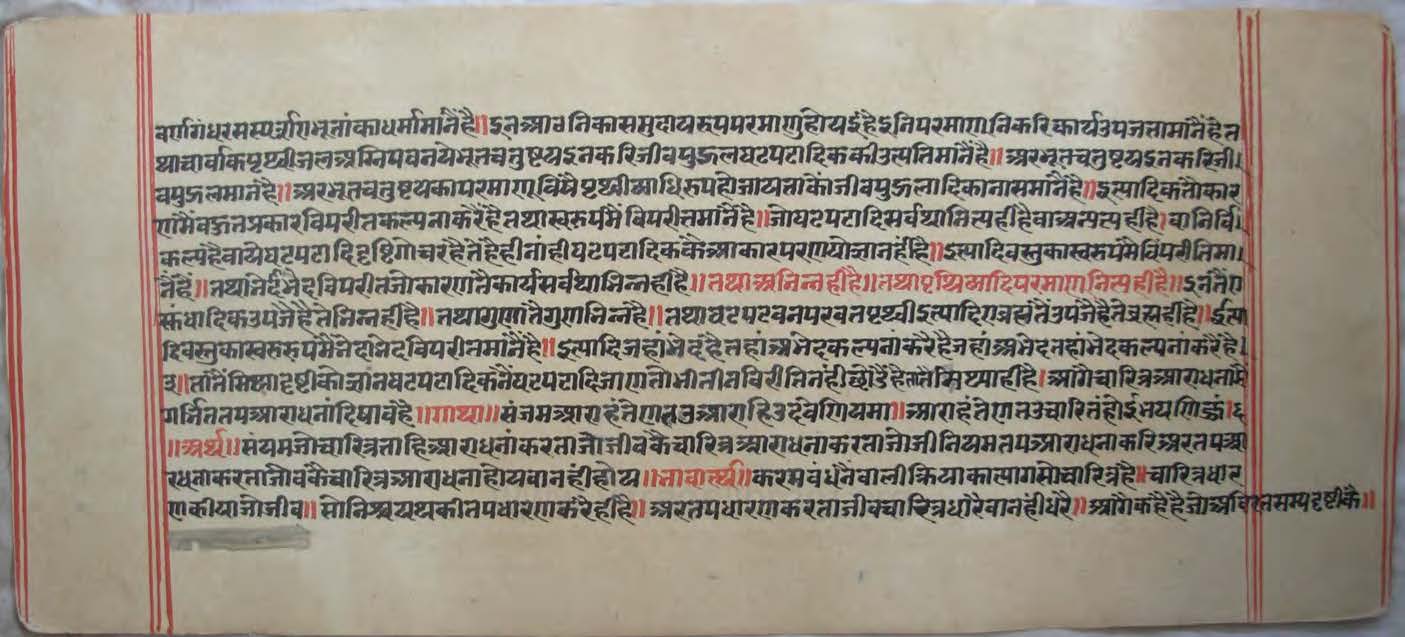 वर्णगंधरसस्पर्शगुणभूतांकाधर्ममांनैंहै॥इनआवनिकाससमुदायरूपपरमाणुहोयहैइनिपरमाणूनिकरिकार्यउपजतामांनैंहैत
थाचार्वाकपृथ्वीजलअग्निपवनयेभूतचतुष्टयइनकरिजीवपुद्गलघटपटादिककीउत्पत्तिमांनैंहै॥अरभूतचतुष्टयइनकरिजी।
वपुद्गलमानंहै॥अरभूतचतुष्टयकापरमाणूविषैपृथ्वीआदिरूपहोजायताकौंजीवपुद्गलादिकानासमानैंहै॥इत्यादिकतौकार
णमैंबहुतप्रकारविपरीतकल्पनाकरैंहैतथास्वरूपमैंविपरीतमानैंहै॥जोघटपटादिसर्वथानित्यहीहैवाअनित्यहीहै।वानिर्वि।
कल्पहैवायेघटपटादिदृष्टिगोचरहैतेहैहीनांहीघटपटादिककैआकारपरणयोज्ञानहींहै॥इत्यादिवस्तुकास्वरूपमैंविपरीतिमा।
नैंहैं॥तथाभेदाभेदविपरीतजोकारणतैंकार्यसर्वथाभिन्नहीहै॥तथाअभिन्नहीहै॥तथापृथिव्यादिपरमाणूनित्यहीहै॥इनतैंए
स्कंधादिकउपजैहैतेभिन्नहीहै॥तथागुणांतैगुणभिन्नहै॥तथाघटपटवनपरवतपृथ्वीइत्यादिएब्रह्मतैंउपजैहैतेब्रह्महीहै॥इत्या
दिवस्तुकास्वरूपमैंभेदाभेदविपरीतमांनैंहै॥इत्यादिजहांभेदहैतहांअभेदकल्पनांकरैहैजहांअभेदतहांभेदकल्पनांकरैंहै।
५॥तांतैंमिथ्यादृष्टीकोज्ञानघटपटादिकनैंघटपटादिजाणतोभीतीनविपरीतिनहीछोडैहैतातैमिथ्याहीहै।आगैचारित्रआराधनामैं
गर्भिततपआराधनांदिषावैहै॥गाथा॥संजमआराहंतेणतउआराहिउहवेणियमा॥आराहंतेणतउचारितंहोइभयणिज्जं।६
॥अर्थ॥संयमजोचारित्रताहिआराधनांकरताजोजीवकैचारित्रआराधनाकरताजोजीनियमतपआराधनाकरिअरतपआ
राधनाकरताजीवंकैचारित्रआराधनाहोयवानहींहोय॥भावार्थ॥करमबंधनैवालीक्रियाकात्यागसोचारित्रहै॥चारित्रधार
णकीयाजोजीव॥सोनिश्चयथकीतपधारणकरैहीहै॥अरतपधारणकरताजीवचारित्रधारैवानहींधरै॥आगैकहैहैजोअविरतसम्यदृष्टीकै॥